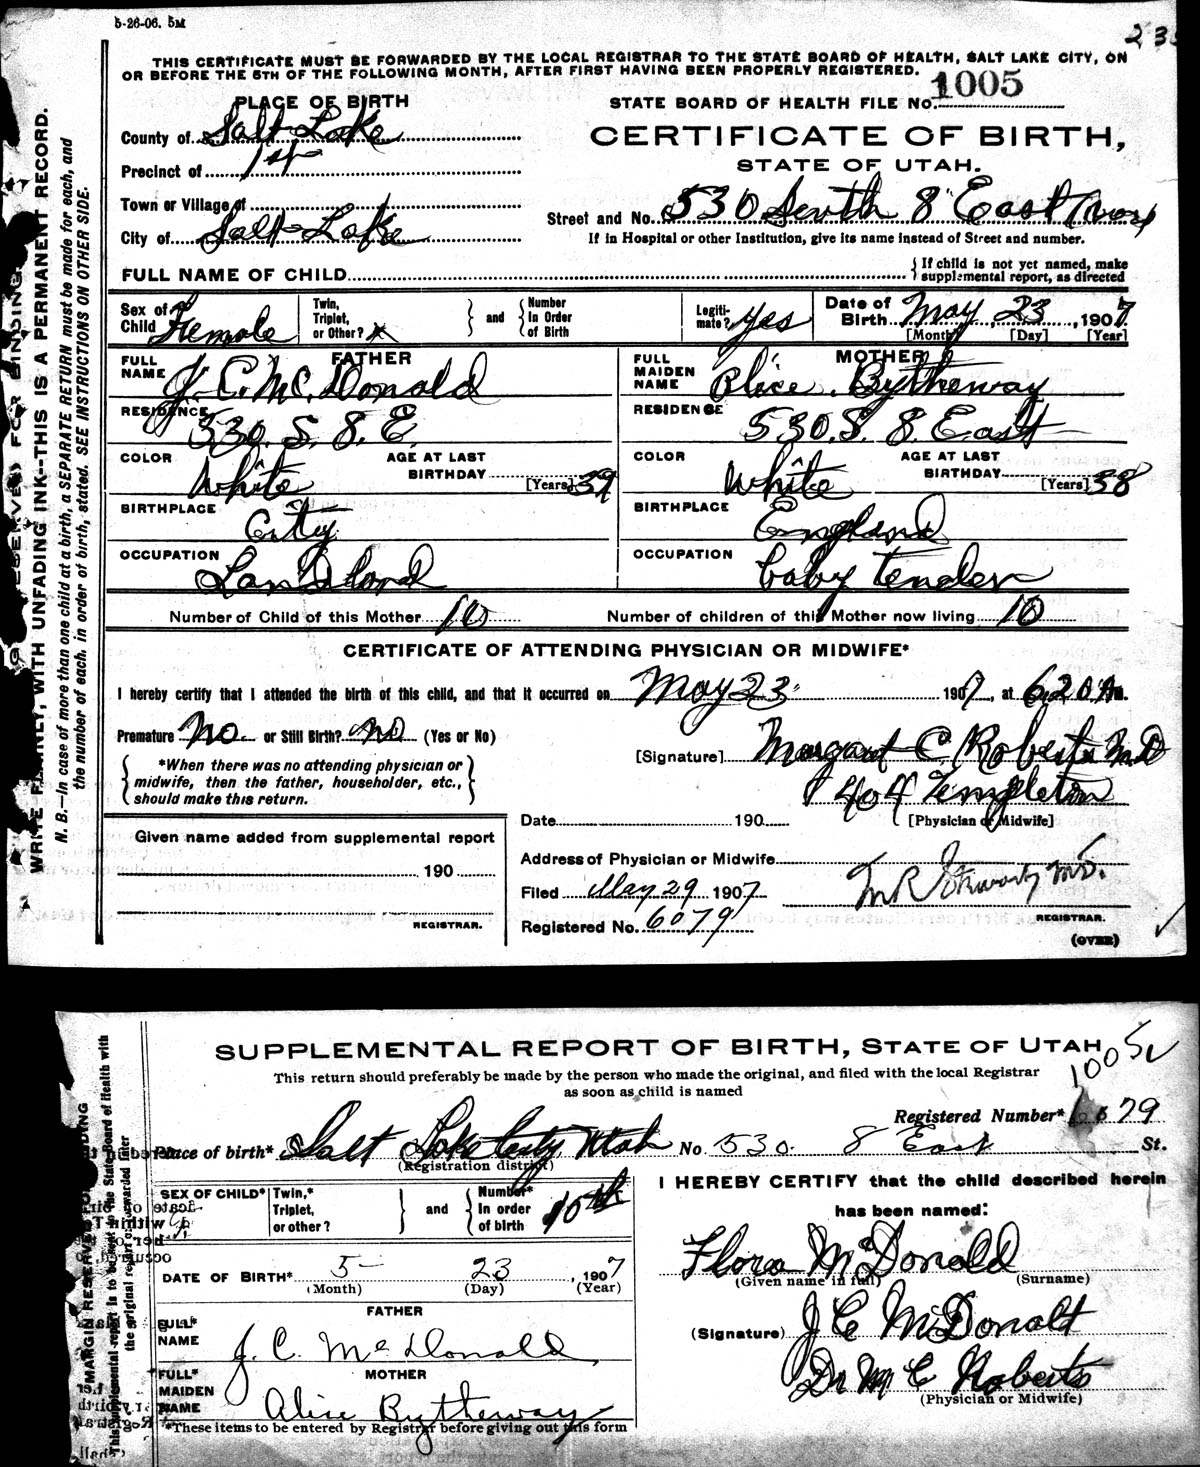 5-26-06. 5M
THIS CERTIFICATE MUST BE FORWARDED BY THE LOCAL REGISTRAR TO THE STATE BOARD OF HEALTH, SALT LAKE CITY, ON
OR BEFORE THE 5TH OF THE FOLLOWING MONTH, AFTER FIRST HAVING BEEN PROPERLY REGISTERED.
PLACE OF BIRTH
STATE BOARD OF HEALTH FILE No. 1005
County of Salt Lake
CERTIFICATE OF BIRTH,
STATE OF UTAH.
Precinct of 1st
Town or Village of
Street and No. 530 South 8" East
City of Salt Lake
If in Hospital or other Institution, give its name instead of Street and number.
FULL NAME OF CHILD
{If child is not yet named, make
supplemental report, as directed
Sex of Child Female
Twin, Triplet, or Other? x
} and {
Number In Order of Birth
Legiti- mate? yes
Date of Birth May 23, 1907
[Month] [Day] [Year]
FATHER
FULL NAME J. C. Mc Donald
MOTHER
FULL MAIDEN NAME Alice Bytheway
RESIDENCE 530. S. 8. E.
RESIDENCE 530. S. 8. East
COLOR White
AGE AT LAST BIRTHDAY 39 [Years]
COLOR White
AGE AT LAST BIRTHDAY 38 [Years]
BIRTHPLACE City
BIRTHPLACE England
OCCUPATION Landlord
OCCUPATION baby tender
Number of Child of this Mother 10
Number of children of this Mother now living 10
CERTIFICATE OF ATTENDING PHYSICIAN OR MIDWIFE*
I hereby certify that I attended the birth of this child, and that it occurred on May 23, 1907, at 6.20 A m.
Premature No. or Still Birth? No (Yes or No)
[Signature] Margaret C. Roberts M.D
404 Templeton
[Physician or Midwife]
{*When there was no attending physician or
midwife, then the father, householder, etc.,
should make this return.}
Date 190
Given name added from supplemental report
190
REGISTRAR.
Address of Physician or Midwife
Filed May 29 1907
REGISTRAR.
Registered No. 6079
(OVER)
WRITE PLAINLY, WITH UNFADING INK--THIS IS A PERMANENT RECORD.
N. B.—In case of more than one child at a birth, a SEPARATE RETURN must be made for each, and
the number of each, in order of birth, stated. SEE INSTRUCTIONS ON OTHER SIDE.
SUPPLEMENTAL REPORT OF BIRTH, STATE OF UTAH
1005
This return should preferably be made by the person who made the original, and filed with the local Registrar
as soon as child is named
Registered Number* 6079
Place of birth* Salt Lake City, Utah No 530. 8 East St.
(Registration district)
SEX OF CHILD*
Twin,* Triplet, or other?
} and {
Number* In order of birth 10th
I HEREBY CERTIFY that the child described herein
has been named:
Flora McDonald
(Given name in full) (Surname)
DATE OF BIRTH* 5- 23, 1907
(Month) (Day) (Year)
FATHER
FULL* NAME J. C. Mc Donald
(Signature) J C McDonald
Dr M C Roberts
(Physician or Midwife)
MOTHER
FULL* MAIDEN NAME Alice Bytheway
*These items to be entered by Registrar before giving out this form
MARGIN RESERVED
This supplemental report is to be sent to the State Board of Health with
the original report